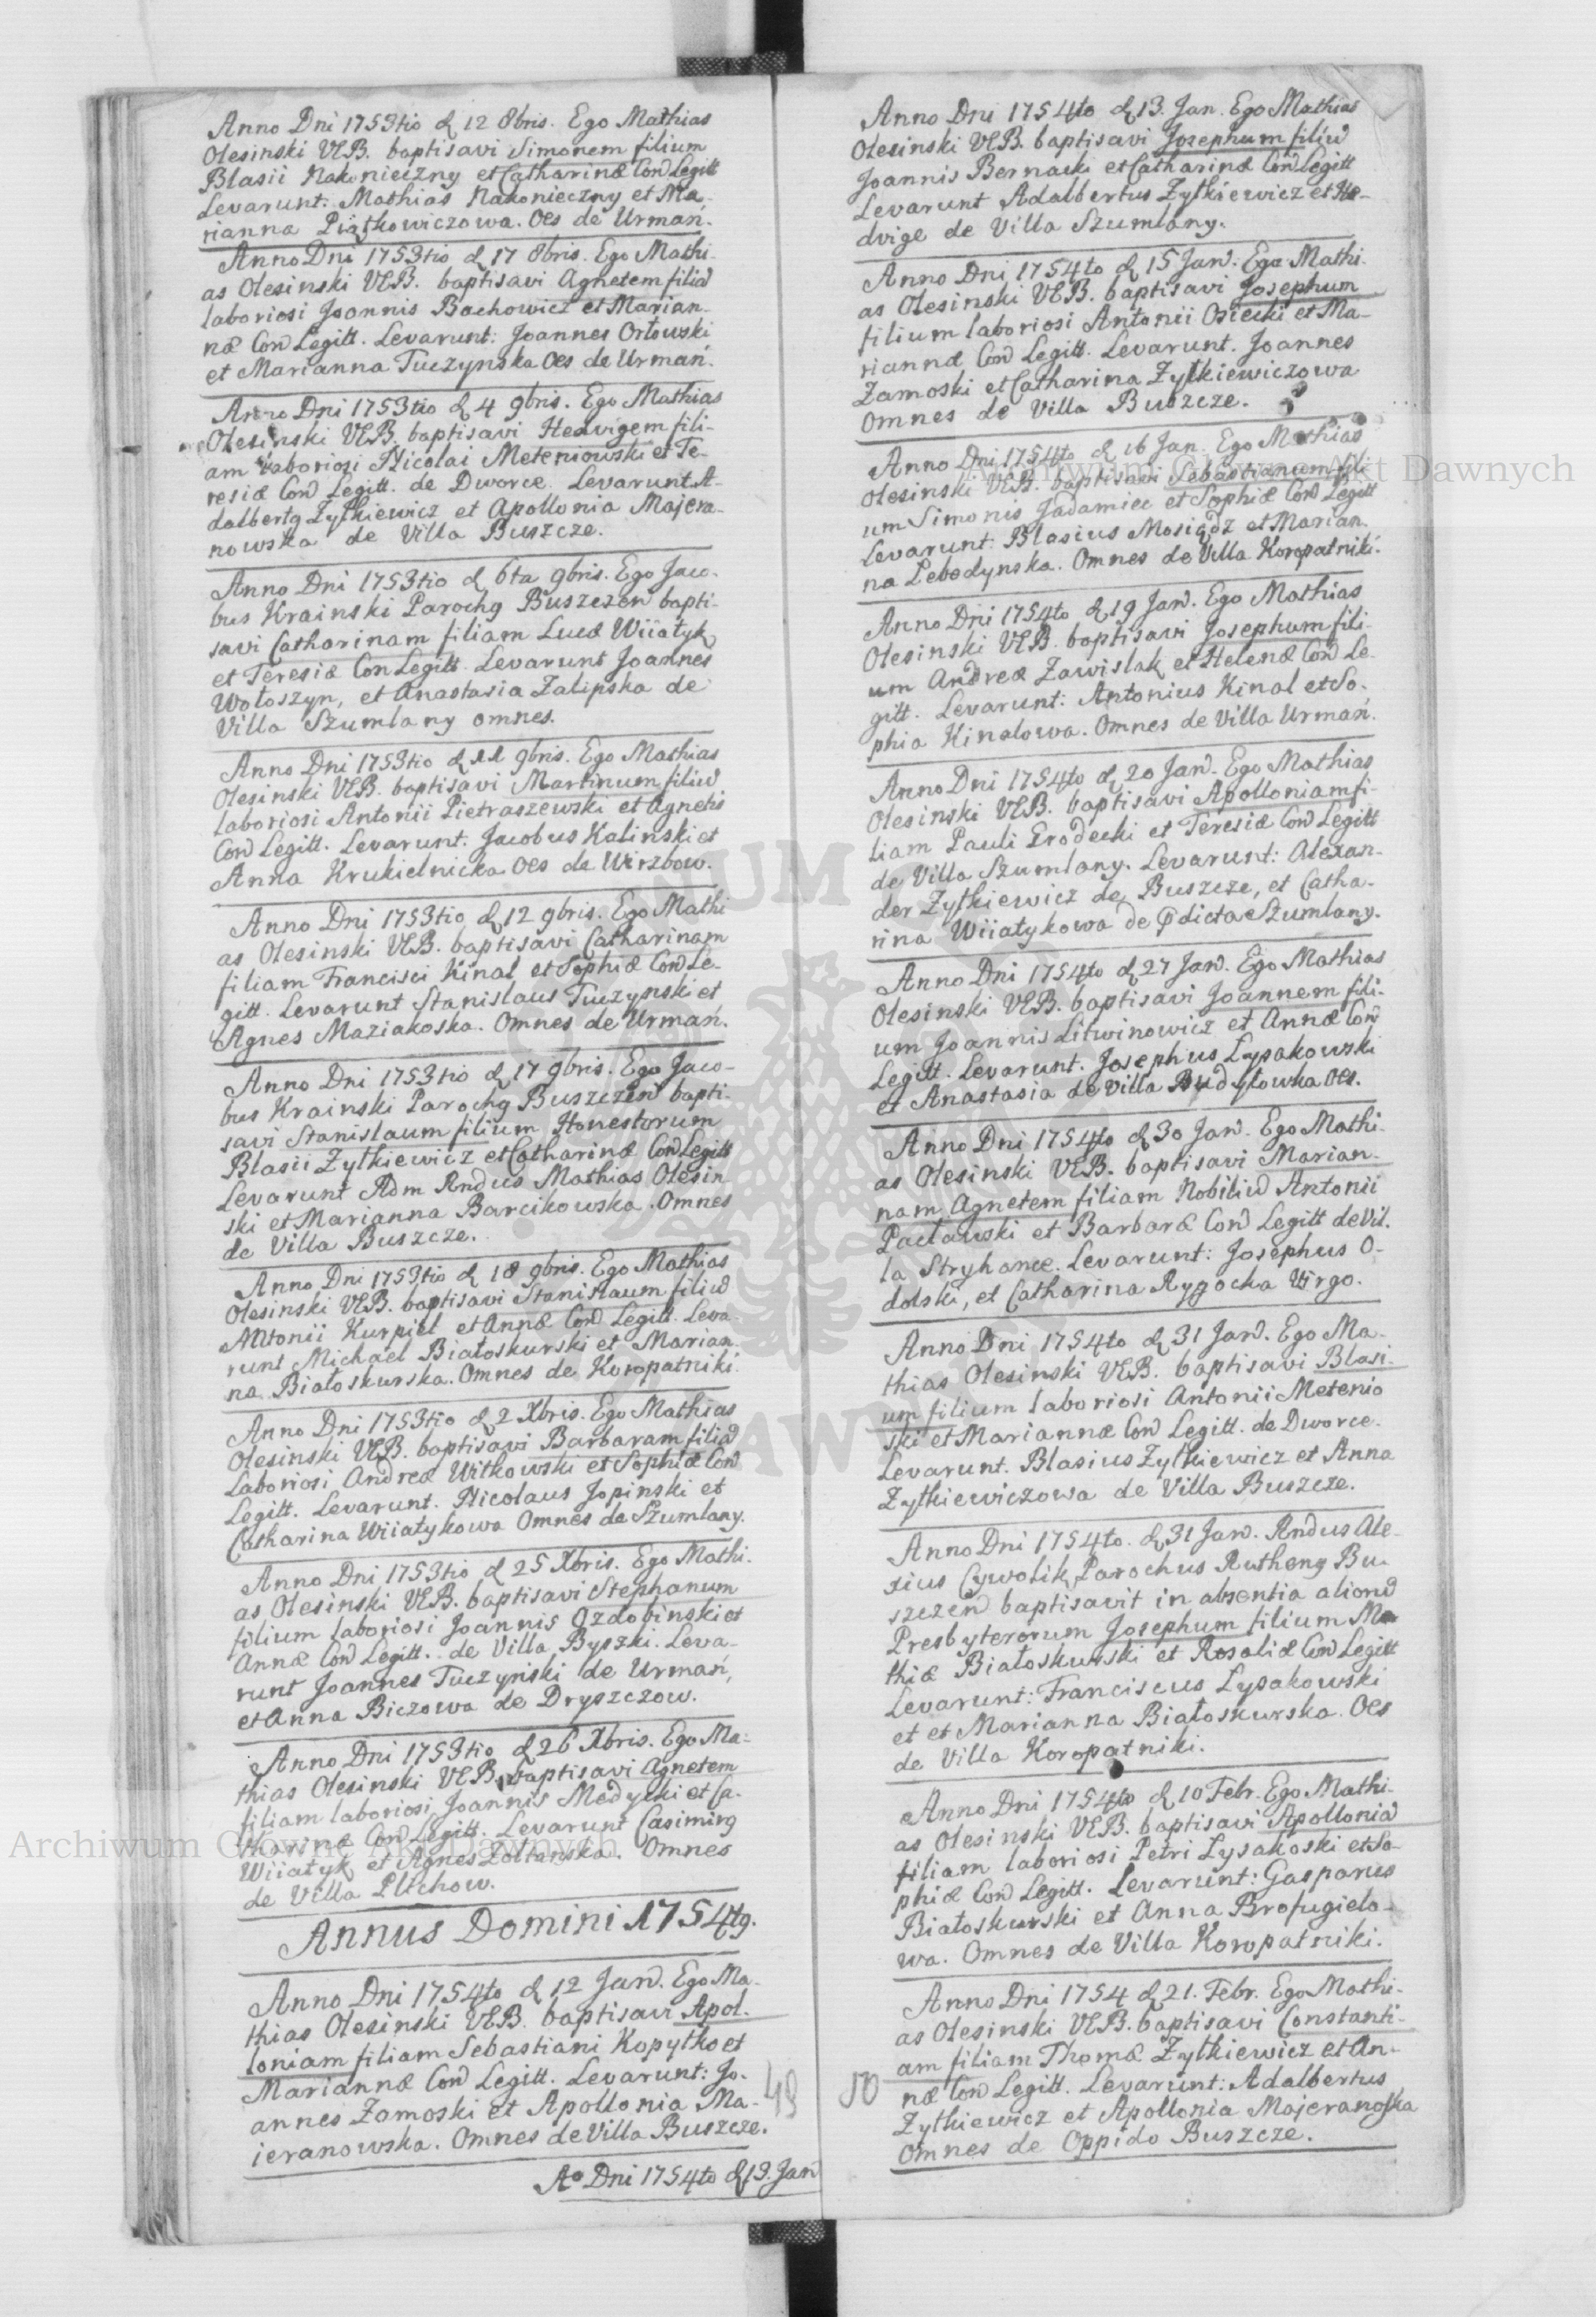 Anno Dni 1753tio d 12 8bris. Ego Mathias
Olesinski VEB. baptisavi Simonem filium
Blasii Nakonieizny et Catharinæ Con Legitt
Levarunt. Mathias Nakonieczny et Ma-
rianna Piątkowiczowa. Oes de Urmań.
Anno Dni 1753tio d 17 8bris. Ego Mathi-
as Olesinski VEB. baptisavi Agnetem filiā
laboriosi Joannis Bachowicz et Marian-
næ Con Legitt. Levarunt: Joannes Orłowski
et Marianna Tuczynska Oes de Urmań.
Anno Dni 1753tio d 4 9bris. Ego Mathias
Olesinski VEB. baptisavi Hedvigem fili-
am laboriosi Nicolai Meteniowski et Te-
resiæ Con Legitt. de Dworce. Levarunt A-
dalbertg Zytkiewicz et Apollonia Majera-
nowska de Villa Buszcze.
Anno Dni 1753tio d 6ta 9bris. Ego Jaco-
bus Krainski Parochg Buszczen bapti-
savi Catharinam filiam Lucæ Wiiatyk
et Teresiæ Con Legitt. Levarunt Joannes
Wołoszyn, et Anastasia Zalipska de
Villa Szumlany omnes.
Anno Dni 1753tio d 11 9bris. Ego Mathias
Olesinski VEB. baptisavi Martinum filiū
laboriosi Antonii Pietraszewski et Agnetis
Con Legitt. Levarunt. Jacobus Kalinski et
Anna Krukielnicka Oes de Wirzbow.
Anno Dni 1753tio d 12 9bris. Ego Mathi
as Olesinski VEB. baptisavi Catharinam
filiam Francisci Kinal et Sophiæ Con Le-
gitt. Levarunt Stanislaus Tuczynski et
Agnes Maziakoska. Omnes de Urmań.
Anno Dni 1753tio d 17 9bris. Ego Jaco-
bus Krainski Parochg Buszczen bapti-
savi Stanislaum filium Honestorum
Blasii Zytkiewicz et Catharinæ Con Legitt
Levarunt Adm Rndus Mathias Olesin-
ski et Marianna Barcikowska. Omnes
de Villa Buszcze.
Anno Dni 1753tio d 18 9bris. Ego Mathias
Olesinski VEB. baptisavi Stanislaum filiū
Antonii Kurpiel et Annæ Con Legitt. Leva-
runt Michael Białoskurski et Marian-
na Białoskurska. Omnes de Koropatniki.
Anno Dni 1753tio d 2 Xbris. Ego Mathias
Olesinski VEB. baptisavi Barbaram filiā
Laboriosi Andreæ Witkowski et Sophiæ Con
Legitt. Levarunt. Nicolaus Jopinski et
Catharina Wiiatykowa Omnes de Szumlany.
Anno Dni 1753tio d 25 Xbris. Ego Mathi-
as Olesinski VEB. baptisavi Stephanum
filium laboriosi Joannis Ozdobinski et
Annæ Con Legitt. de Villa Byszki. Leva-
runt Joannes Tuczyński de Urmań,
et Anna Biczowa de Dryszczow.
Anno Dni 1753tio d 26 Xbris. Ego Ma-
thias Olesinski VEB. baptisavi Agnetem
filiam laboriosi Joannis Medycki et Ca-
tharinæ Con Legitt. Levarunt Casimirg
Wiiatyk et Agnes Zoltanska. Omnes
de Villa Plichow.
Annus Domini 1754tg.
Anno Dni 1754to d 12 Jan. Ego Ma-
thias Olesinski VEB. baptisavi Apol-
loniam filiam Sebastiani Kopytko et
Mariannæ Con Legitt. Levarunt: Jo-
annes Zamoski et Apollonia Ma-
ieranowska. Omnes de Villa Buszcze.
Ao Dni 1754to d 13. Jan
49
Anno Dni 1754to d 13. Jan. Ego Mathias
Olesinski VEB. baptisavi Josephum filiū
Joannis Bernacki et Catharinæ Con Legitt
Levarunt Adalbertus Zytkiewicz et He-
dvige de Villa Szumlany.
Anno Dni 1754to d 15 Jan. Ego Mathi-
as Olesinski VEB. baptisavi Josephum
filium laboriosi Antonii Osiecki et Ma-
riannæ Con Legitt. Levarunt. Joannes
Zamoski et Catharina Zytkiewiczowa
Omnes de Villa Buszcze.
Anno Dni 1754to d 16 Jan. Ego Mathias
Olesinski VEB. baptisavi Sebastianum fili-
um Simonis Jadamiec et Sophiæ Con Legitt
Levarunt: Blasius Mosiądz et Marian-
na Lebedynska. Omnes de Villa Koropatniki.
Anno Dni 1754to d 19 Jan. Ego Mathias
Olesinski VEB. baptisavi Josephum fili-
um Andreæ Zawislak et Helenæ Con Le-
gitt. Levarunt: Antonius Kinal et So-
phia Kinalowa. Omnes de Villa Urmań.
Anno Dni 1754to d 20 Jan. Ego Mathias
Olesinski VEB. baptisavi Apolloniam fi-
liam Pauli Grodecki et Teresiæ Con Legitt
de Villa Szumlany. Levarunt: Alexan-
der Zytkiewicz de Buszcze, et Catha-
rina Wiiatykowa de pdicta Szumlany.
Anno Dni 1754to d 27 Jan. Ego Mathias
Olesinski VEB. baptisavi Joannem fili-
um Joannis Litwinowicz et Annæ Con
Legitt. Levarunt. Josephus Lysakowski
et Anastasia de Villa Budyłowka Oes.
Anno Dni 1754to d 30 Jan. Ego Mathi-
as Olesinski VEB. baptisavi Marian-
nam Agnetem filiam Nobiliū Antonii
Pacławski et Barbaræ Con Legitt de Vil-
la Stryhance. Levarunt: Josephus O-
dolski, et Catharina Rygocka Virgo.
Anno Dni 1754to d 31 Jan. Ego Ma-
thias Olesinski VEB. baptisavi Blasi-
um filium laboriosi Antonii Metenio
ski et Mariannæ Con Legitt. de Dworce.
Levarunt. Blasius Zytkiewicz et Anna
Zytkiewiczowa de Villa Buszcze.
Anno Dni 1754to. d 31 Jan. Rndus Ale-
xius Cywolik Parochus Rutheng Bu-
szczen baptisavit in absentia aliorū
Presbyterorum Josephum filium Ma
thiæ Białoskurski et Rosaliæ Con Legitt
Levarunt: Franciscus Lysakowski
et et Marianna Białoskurska. Oes
de Villa Koropatniki.
Anno Dni 1754to d 10 Febr. Ego Mathi-
as Olesinski VEB. baptisavi Apolloniā
filiam laboriosi Petri Lysakoski et So-
phiæ Con Legitt. Levarunt: Gasparus
Białoskurski et Anna Brofugielo-
wa. Omnes de Villa Koropatniki.
Anno Dni 1754 d 21. Febr. Ego Mathi-
as Olesinski VEB. baptisavi Constanti-
am filiam Thomæ Zytkiewicz et An-
næ Con Legitt. Levarunt: Adalbertus
Zytkiewicz et Apollonia Majeranoska
Omnes de Oppido Buszcze.
50
Archiwum Główne Akt Dawnych
Archiwum Główne Akt Dawnych